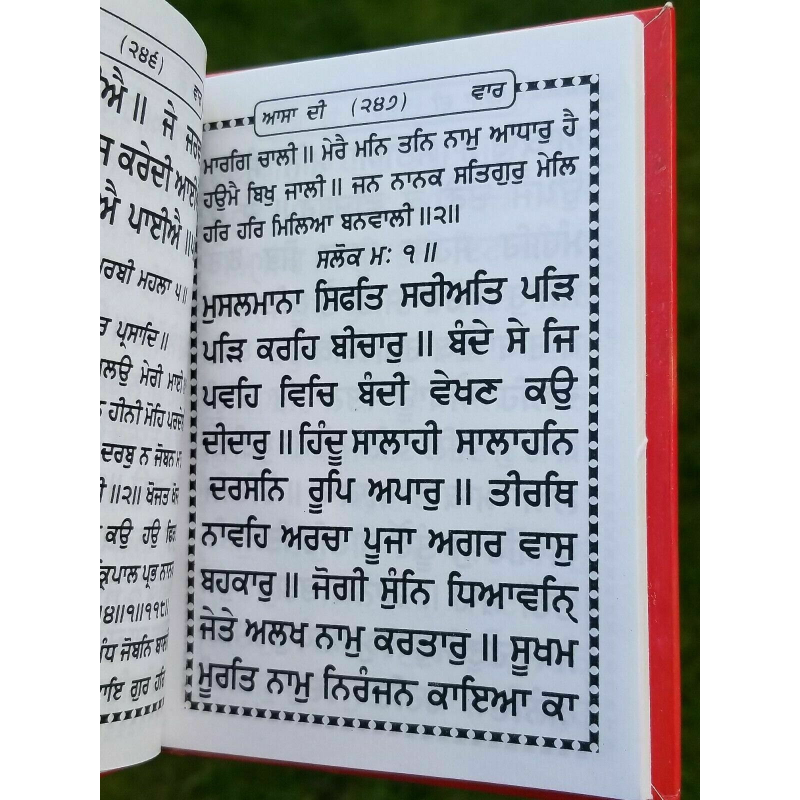 (੨੪੬)
ਵਾਰ
ਐ ॥ ਜੇ
ਕਰੇਦੀ
ਐ ਪਾਈਐ ॥
ਰਬੀ ਮਹਲਾ ੫ ॥
ਪ੍ਰਸਾਦਿ ॥
ਲਉ ਮੇਰੀ ਮਾਈ
ਹੀਨੀ ਮੋਹਿ
ਦਰਬੁ ਨ ਜੋਬਨ
॥੨॥ ਖੋਜਤ
ਕਉ ਹਉ
ਕ੍ਰਿਪਾਲ ਪ੍ਰਭ
੪॥੧॥੧੧੮॥
ਜੋਬਨਿ
ਗੁਰ
ਆਸਾ ਦੀ (੨੪੭) ਵਾਰ
ਮਾਰਗਿ ਚਾਲੀ ॥ ਮੇਰੈ ਮਨਿ ਤਨਿ ਨਾਮੁ ਆਧਾਰੁ ਹੈ
ਹਉਮੈ ਬਿਖੁ ਜਾਲੀ ॥ ਜਨ ਨਾਨਕ ਸਤਿਗੁਰੁ ਮੇਲਿ
ਹਰਿ ਹਰਿ ਮਿਲਿਆ ਬਨਵਾਲੀ ॥੨॥
ਸਲੋਕ ਮਃ ੧ ॥
ਮੁਸਲਮਾਨਾ ਸਿਫਤਿ ਸਰੀਅਤਿ ਪੜਿ
ਪੜਿ ਕਰਹਿ ਬੀਚਾਰੁ ॥ ਬੰਦੇ ਸੇ ਜਿ
ਪਵਹਿ ਵਿਚਿ ਬੰਦੀ ਵੇਖਣ ਕਉ
ਦੀਦਾਰੁ ॥ ਹਿੰਦੂ ਸਾਲਾਹੀ ਸਾਲਾਹਨਿ
ਦਰਸਨਿ ਰੂਪਿ ਅਪਾਰੁ ॥ ਤੀਰਥਿ
ਨਾਵਹਿ ਅਰਚਾ ਪੂਜਾ ਅਗਰ ਵਾਸੁ
ਬਹਕਾਰੁ ॥ ਜੋਗੀ ਸੁੰਨਿ ਧਿਆਵਨ੍ਹਿ
ਜੇਤੇ ਅਲਖ ਨਾਮੁ ਕਰਤਾਰੁ ॥ ਸੂਖਮ
ਮੂਰਤਿ ਨਾਮੁ ਨਿਰੰਜਨ ਕਾਇਆ ਕਾ